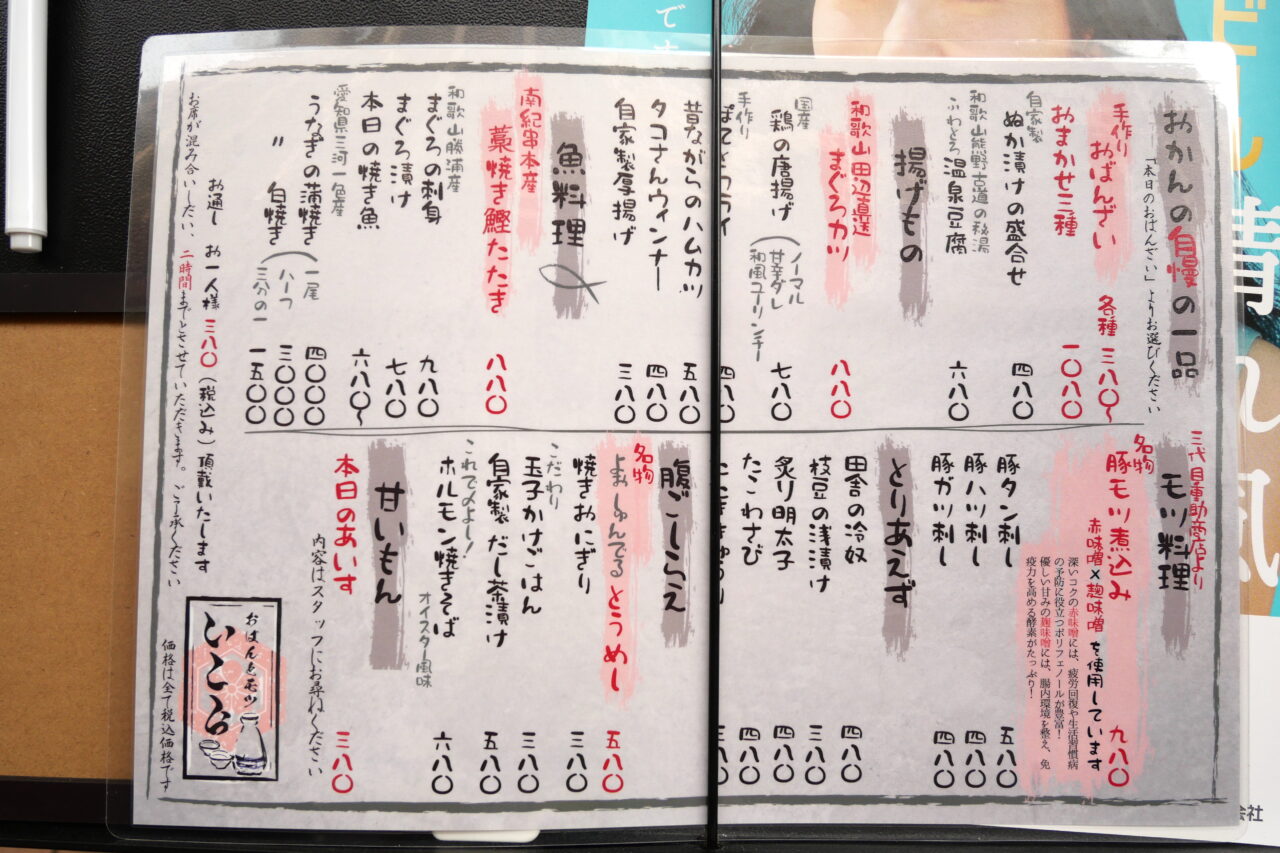 おかんの自慢の一品
「本日のおばんざい」よりお選びください
手作り
おばんざい 各種 三八〇〜
おまかせ三種 一〇八〇
自家製
ぬか漬けの盛合せ 四八〇
和歌山熊野古道の秘湯
ふわとろ 温泉豆腐 六八〇
揚げもの
和歌山田辺直送
まぐろカツ 八八〇
国産
鶏の唐揚げ 七八〇
ノーマル
甘辛ダレ
和風ユーリンチー
手作り
四八〇
昔ながらのハムカツ 五八〇
タコさんウィンナー 四八〇
自家製厚揚げ 三八〇
魚料理
南紀串本産
藁焼き鰹たたき 八八〇
和歌山勝浦産
まぐろの刺身 九八〇
まぐろ漬け 七八〇
本日の焼き魚 六八〇〜
愛知県三河一色産
うなぎの蒲焼き 一尾 四〇〇〇
〃 白焼き ハーフ 三〇〇〇
三分の一 一五〇〇
お通し お一人様 三八〇(税込み)頂戴いたします
お席が混み合いしだい、二時間までとさせていただきます。ご了承ください
三代目重助商店より
モツ料理
名物
豚モツ煮込み 九八〇
赤味噌×麹味噌 を使用しています
深いコクの赤味噌には、疲労回復や生活習慣病
の予防に役立つポリフェノールが豊富!
優しい甘みの麹味噌には、腸内環境を整え、免
疫力を高める酵素がたっぷり!
豚タン刺し 五八〇
豚ハツ刺し 四八〇
豚ガツ刺し 四八〇
とりあえず
田舎の冷奴 四八〇
枝豆の浅漬け 三八〇
炙り明太子 四八〇
たこわさび 四八〇
三八〇
腹ごしらえ
名物
しゅんでる とうめし 五八〇
焼きおにぎり 三八〇
こだわり
玉子かけごはん 三八〇
自家製だし茶漬け 五八〇
これで〆よし!
ホルモン焼きそば 六八〇
オイスター風味
甘いもん
本日のあいす 三八〇
内容はスタッフにお尋ねください
おばんとモツ
いこら
価格は全て税込価格です
会社